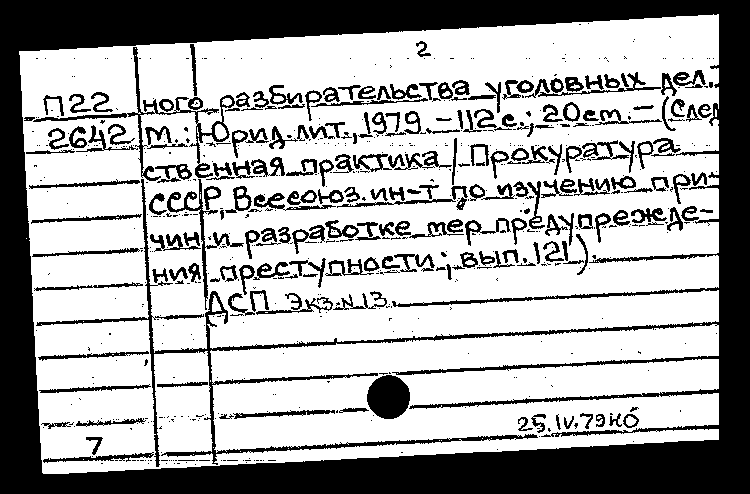 2
П22 ного разбирательства уголовных дел.-
2642 М.: Юрид. лит., 1979. - 112 с.; 20 см. - (След
ственная практика / Прокуратура
СССР, Всесоюз. ин-т по изучению при-
чин и разработке мер предупрежде-
ния преступности; вып. 121).
ДСП Экз. N 13.
25.IV.79
7